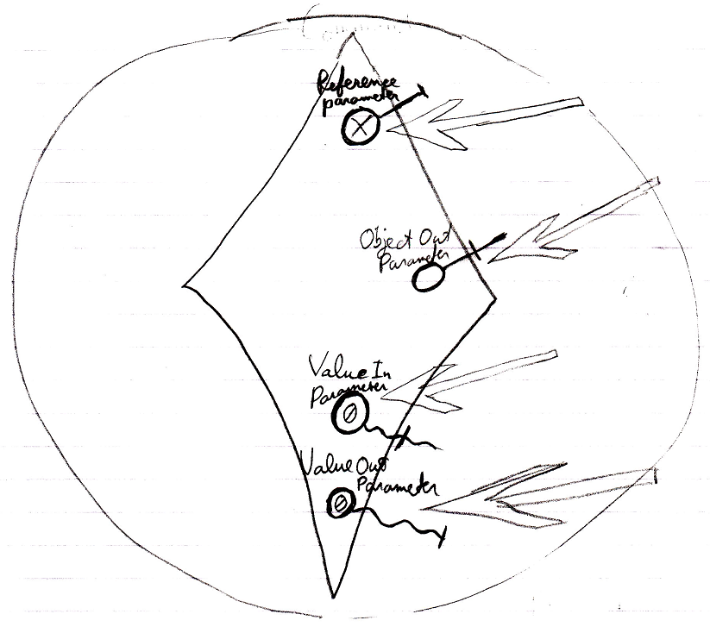 Reference
parameter
Object Out
Parameter
Value In
Parameter
Value Out
Parameter